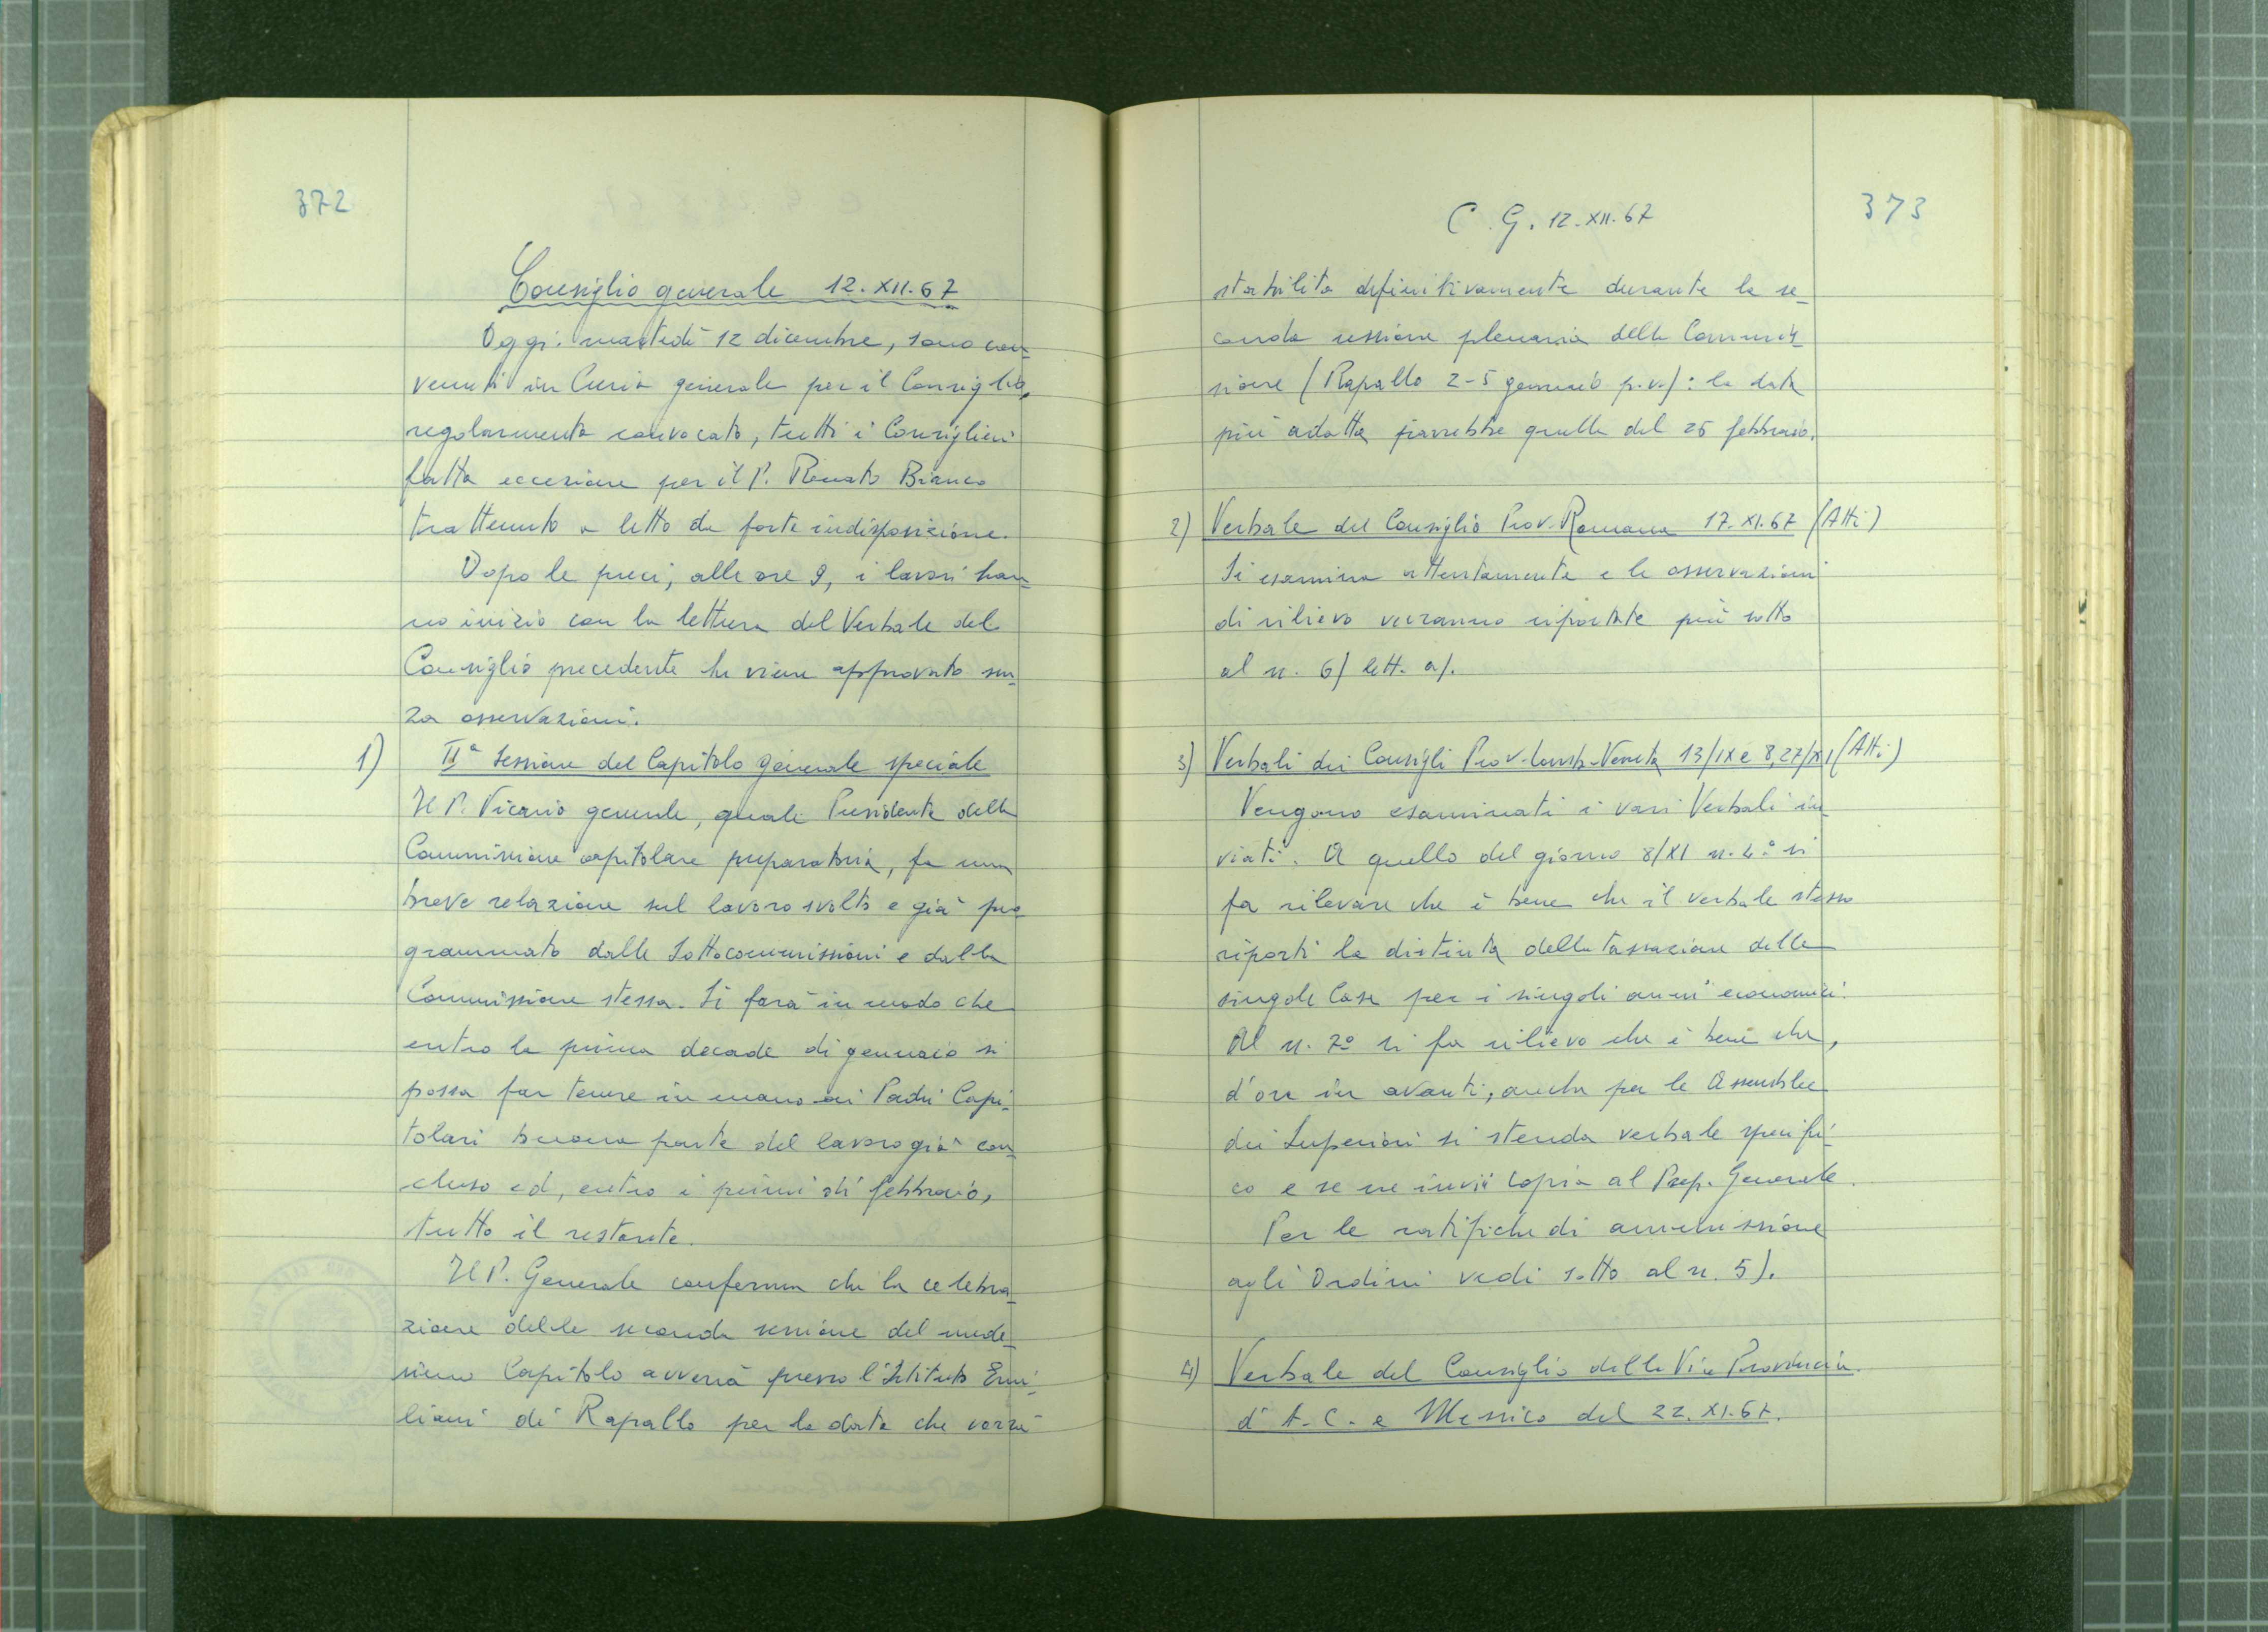 372
Consiglio generale 12.XII.67
Oggi martedì 12 dicembre, sono con-
venuti in Curia generale per il Consiglio,
regolarmente convocato, tutti i Consiglieri
fatta eccezione per il P. Renato Bianco
trattenuto a letto da forte indisposizione.
Dopo le preci, alle ore 9, i lavori han-
no inizio con la lettura del Verbale del
Consiglio precedente che viene approvato sen-
za osservazioni.
1) IIª Sessione del Capitolo generale speciale
Il P. Vicario generale, quale Presidente della
Commissione capitolare preparatoria, fa una
breve relazione sul lavoro svolto e già pro-
grammato dalle Sottocommissioni e dalla
Commissione stessa. Si farà in modo che
entro la prima decade di gennaio si
possa far tenere in mano ai Padri Capi-
tolari buona parte del lavoro già con-
cluso ed, entro i primi di febbraio,
tutto il restante.
Il P. Generale conferma che la celebra-
zione della seconda sessione del mede-
simo Capitolo avverrà presso l'Istituto Emi-
liani di Rapallo per la data che verrà
373
C.G. 12.XII.67
stabilita definitivamente durante la se-
conda sessione plenaria della Commis-
sione (Rapallo 2-5 gennaio p.v.): la data
più adatta parrebbe quella del 25 febbraio.
2) Verbale del Consiglio Prov. Romana 17.XI.67 (Atti)
Si esamina attentamente e le osservazioni
di rilievo verranno riportate più sotto
al n. 6) lett. a).
3) Verbali dei Consigli Prov. Lomb-Veneta 13/IX e 8,27/XI (Atti)
Vengono esaminati i vari Verbali in-
viati. A quello del giorno 8/XI n. 4º si
fa rilevare che è bene che il verbale stesso
riporti la distinta della tassazione delle
singole Case per i singoli anni economici.
Al n. 7º si fa rilievo che è bene che,
d'ora in avanti, anche per le Assemblee
dei Superiori si stenda verbale specifi-
co e se ne invii copia al Prep. Generale.
Per le ratifiche di ammissione
agli Ordini vedi sotto al n. 5).
4) Verbale del Consiglio della Vice Provincia
d' A. C. e Messico del 22.XI.67.